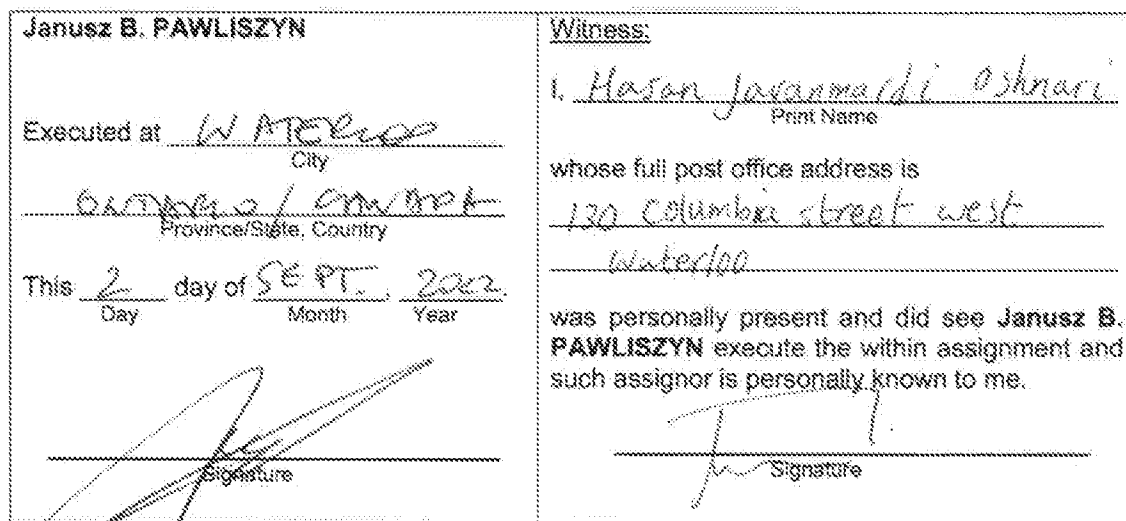 Janusz B. PAWLISZYN
Executed at WATERLOO
City
ONTARIO / CANADA
Province/State, Country
This 2 day of SEPT. , 2022.
Day Month Year
Signature
Witness:
I, Hasan Javanmardi Oshnari
Print Name
whose full post office address is
130 Columbia street west
Waterloo
was personally present and did see Janusz B.
PAWLISZYN execute the within assignment and
such assignor is personally known to me.
Signature